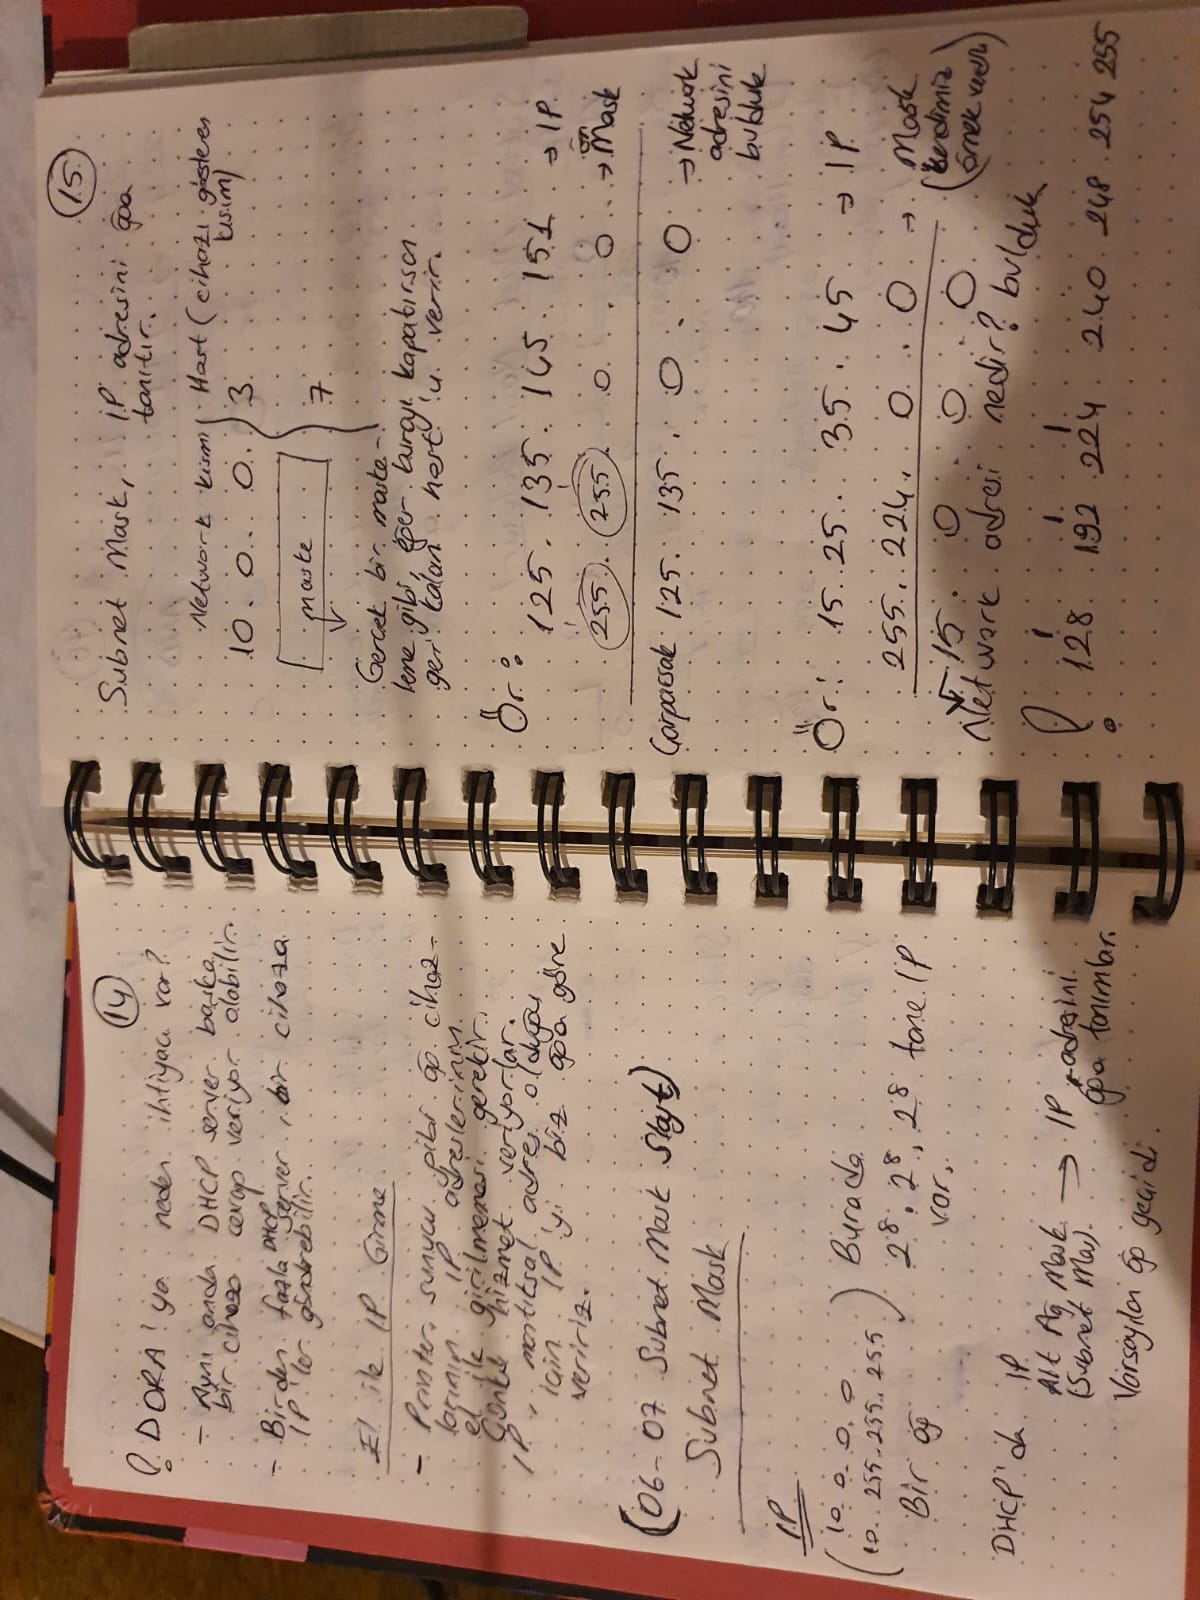 14
! DORA'ya neden ihtiyacı var?
- Aynı anda DHCP server başka
bir cihaza cevap veriyor olabilir.
- Birden fazla DHCP server, bir cihaza
IP'ler gönderebilir.
El ile IP Girme
- Printer, sunucu gibi ağ cihaz-
larının IP adreslerinin
el ile girilmemesi gerekir.
Çünkü hizmet veriyorlar.
IP, mantıksal adres olduğu
için IP'yi biz ağa göre
veririz.
(06-07 Subnet Mask Slayt)
Subnet Mask
IP
(10. 0. 0. 0
10. 255. 255. 255) Burada
Bir ağ 2⁸. 2⁸. 2⁸ tane IP
var.
DHCP'da IP
Alt Ağ Mask → IP adresini
(Subnet Mas). ağa tanımlar.
Varsayılan ağ geçidi.
15
Subnet Mask, IP adresini ağa
tanıtır.
Network kısmı Host (cihazı gösteren
kısım)
10. 0. 0. 3
maske
7
Gerçek bir maske-
leme gibi, eğer burayı kapatırsan
geri kalan host'u verir.
Ör:
125. 135. 145. 151 → IP
255. 255. 0. 0 → Mask
Çarparsak 125. 135. 0. 0 → Network
adresini
bulduk
Ör: 15. 25. 35. 45 → IP
255. 224. 0. 0 → Mask
(kendimiz
örnek verdik)
15. 0. 0. 0
Network adresi nedir? bulduk
! 128 192 224 240 248 254 255